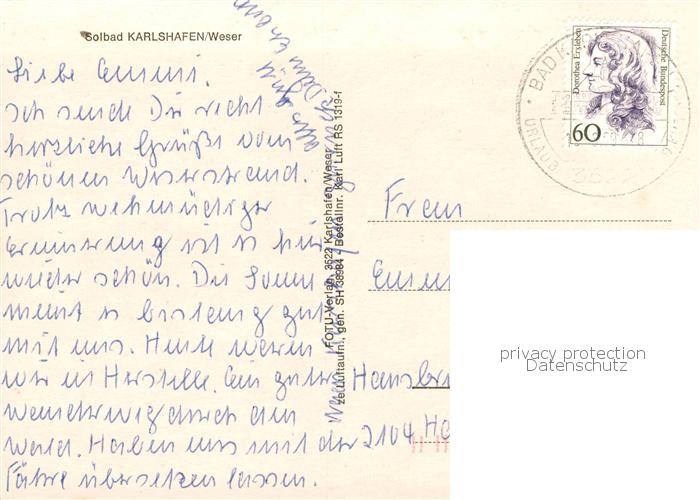 Solbad KARLSHAFEN/Weser
Liebe Emmi.
Ich sende Dir recht
herzliche Grüße vom
schönen Weserstrand.
Trotz wehmütiger
Erinnerung ist es hier
wieder schön. Die Sonne
meint es bislang gut
mit uns. Heute waren
wir in Herstelle. Ein guter
Wanderweg durch den
Wald. Haben uns mit der
Fähre übersetzen lassen.
Alles Gute
FOTU-Verlag, 3522 Karlshafen/Weser
(Luftaufn), gen. SH 38984 - Bestellnr. Karl Luft RS 1319-f
Dorothea Erxleben
Deutsche Bundespost
60
BAD
URLAUB
Frau
Hansbr
2104 Ha
privacy protection
Datenschutz